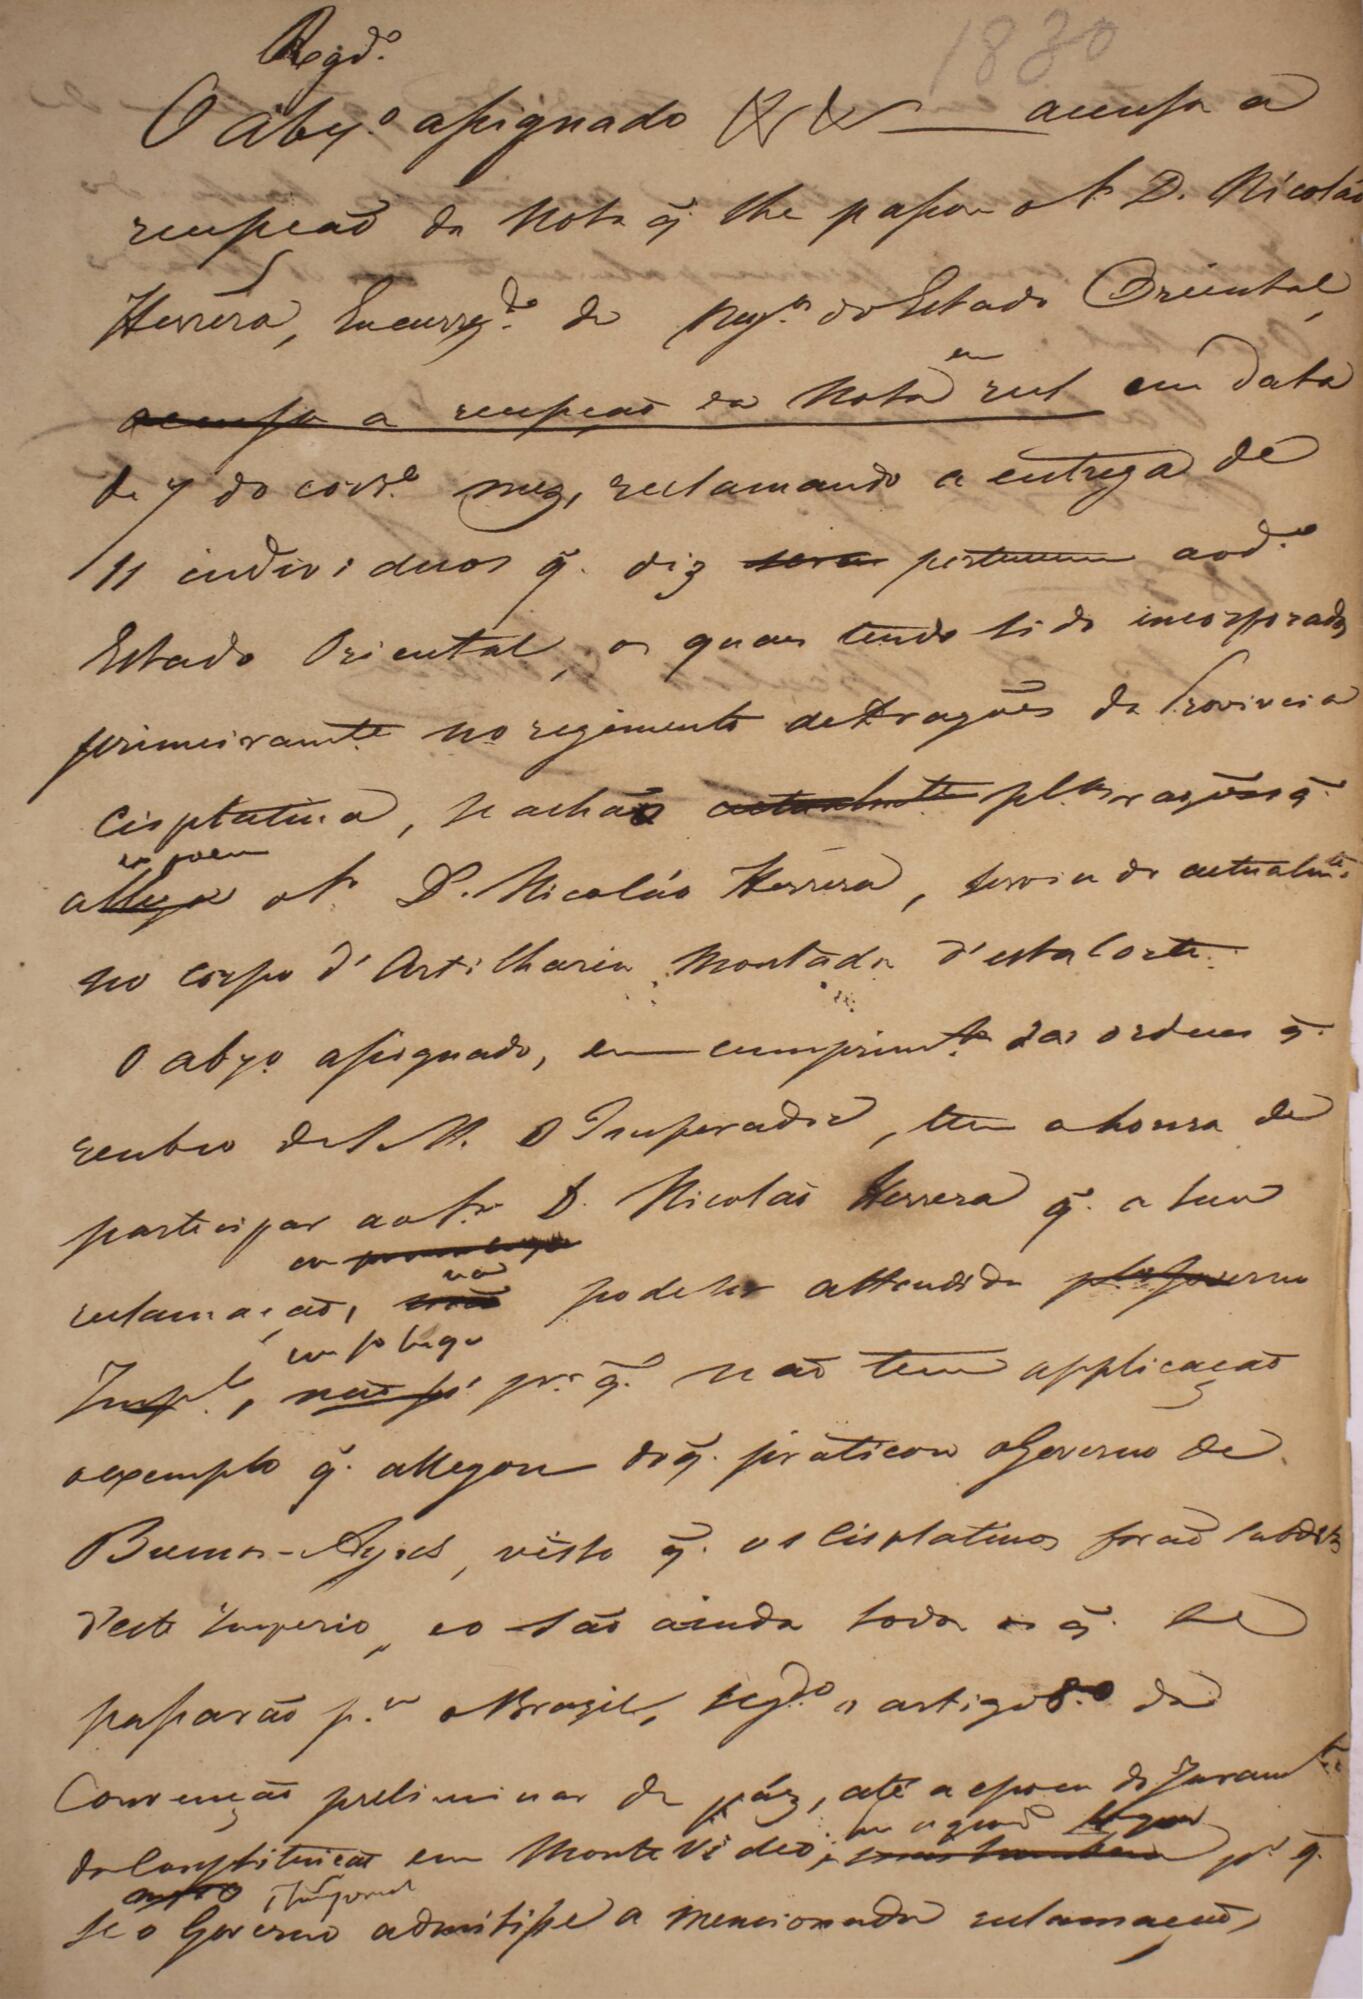 Regd.º
1830
O abxº assignado &c &c accusa a
recepção da Nota q̃ lhe passou o Sr. D. Nicoláo
Herrera, Encarregdº de Negºs do Estado Oriental,
accusa a recepção da Nota em data
de 7 do corrº mez, reclamando a entrega de
11 individuos q̃. diz pertencem aod.º
Estado Oriental, os quaes tendo sido incorporados
primeiramte no regimento de Dragões da Provincia
Cisplatina, se achão actualmte plas razões q̃.
expoem
allega o Sr. D. Nicoláo Herrera, servindo actualmte.
no corpo d'Artilharia Montada d'esta Corte.
O abxº. assignado, em cumprimto das ordens q̃.
recebeo de S. M. O Imperador, tem a honra de
participar ao Sr. D. Nicoláo Herrera q̃. a sua
não
reclamação, não pode ser attendida plo Governo
Impl., não só pr. q̃. não tem applicação
o exemplo q̃. allegou do q̃. praticou o Governo de
Buenos-Ayres, visto q̃. os Cisplatinos forão subditos
d'este Imperio, e o são ainda todos os q̃. se
passarão p.ª o Brazil, segdº o artigo 8.º da
Convenção preliminar de páz, até a epoca do Juramto
da Constituição em Monte Video; mas tambem pr q̃.
Imperial
se o Governo admitisse a mencionada reclamação,